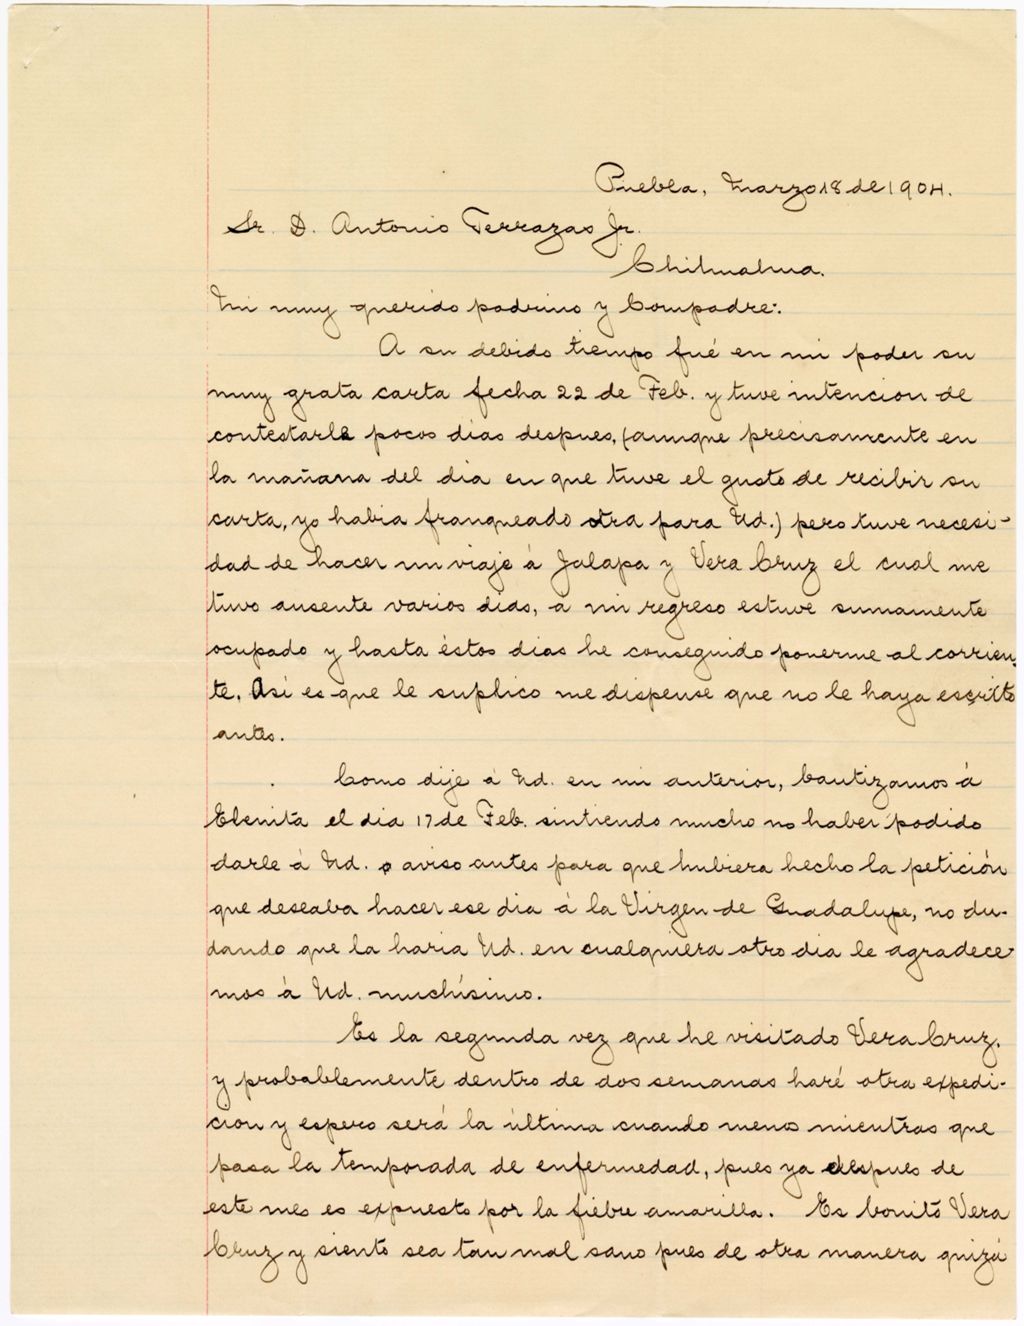 Puebla, Marzo 18 de 1904.
Sr. D. Antonio Terrazas Jr.
Chihuahua.
Mi muy querido padrino y Compadre:
A su debido tiempo fué en mi poder su
muy grata carta fecha 22 de Feb. y tuve intencion de
contestarle pocos dias despues, (aunque precisamente en
la mañana del dia en que tuve el gusto de recibir su
carta, yo habia franqueado otra para Ud.) pero tuve necesi-
dad de hacer un viaje á Jalapa y Vera Cruz el cual me
tuvo ausente varios dias, á mi regreso estuve sumamente
ocupado y hasta éstos dias he conseguido ponerme al corrien
te. Así es que le suplico me dispense que no le haya escrito
antes.
Como dije á Ud. en mi anterior, bautizamos á
Elenita el dia 17 de Feb. sintiendo mucho no haber podido
darle á Ud. aviso antes para que hubiera hecho la petición
que deseaba hacer ese dia á la Virgen de Guadalupe, no du-
dando que la haria Ud. en cualquiera otro dia le agradece
mos á Ud. muchísimo.
Es la segunda vez que he visitado Vera Cruz.
y probablemente dentro de dos semanas haré otra expedi-
cion y espero será la última cuando menos mientras que
pasa la temporada de enfermedad, pues ya despues de
este mes es expuesto por la fiebre amarilla. Es bonito Vera
Cruz y siento sea tan mal sano pues de otra manera quizá